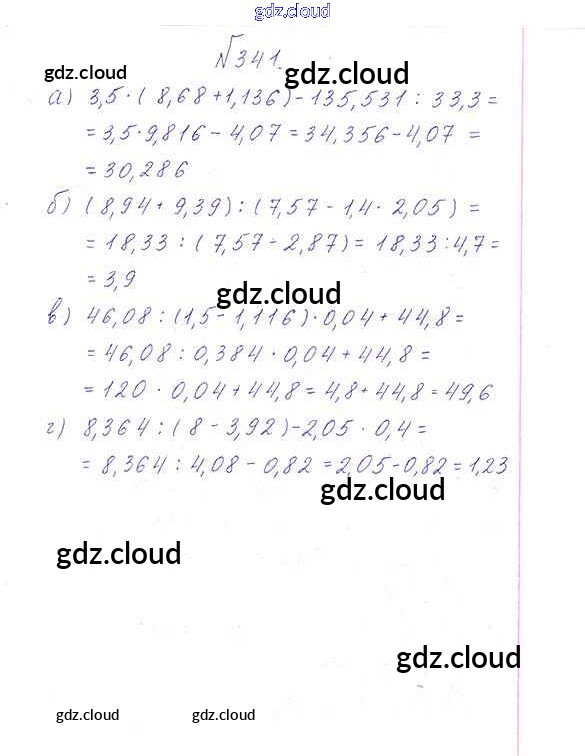 gdz.cloud
№341.
gdz.cloud gdz.cloud
а) 3,5·(8,68+1,136)-135,531 : 33,3=
=3,5·9,816-4,07=34,356-4,07 =
=30,286
б) (8,94+9,39):(7,57-1,4·2,05)=
=18,33:(7,57-2,87)=18,33:4,7=
=3,9
gdz.cloud
в) 46,08:(1,5-1,116)·0,04+44,8=
=46,08:0,384·0,04+44,8=
=120·0,04+44,8=4,8+44,8=49,6
г) 8,364:(8-3,92)-2,05·0,4=
=8,364:4,08-0,82=2,05-0,82=1,23
gdz.cloud
gdz.cloud
gdz.cloud
gdz.cloud gdz.cloud